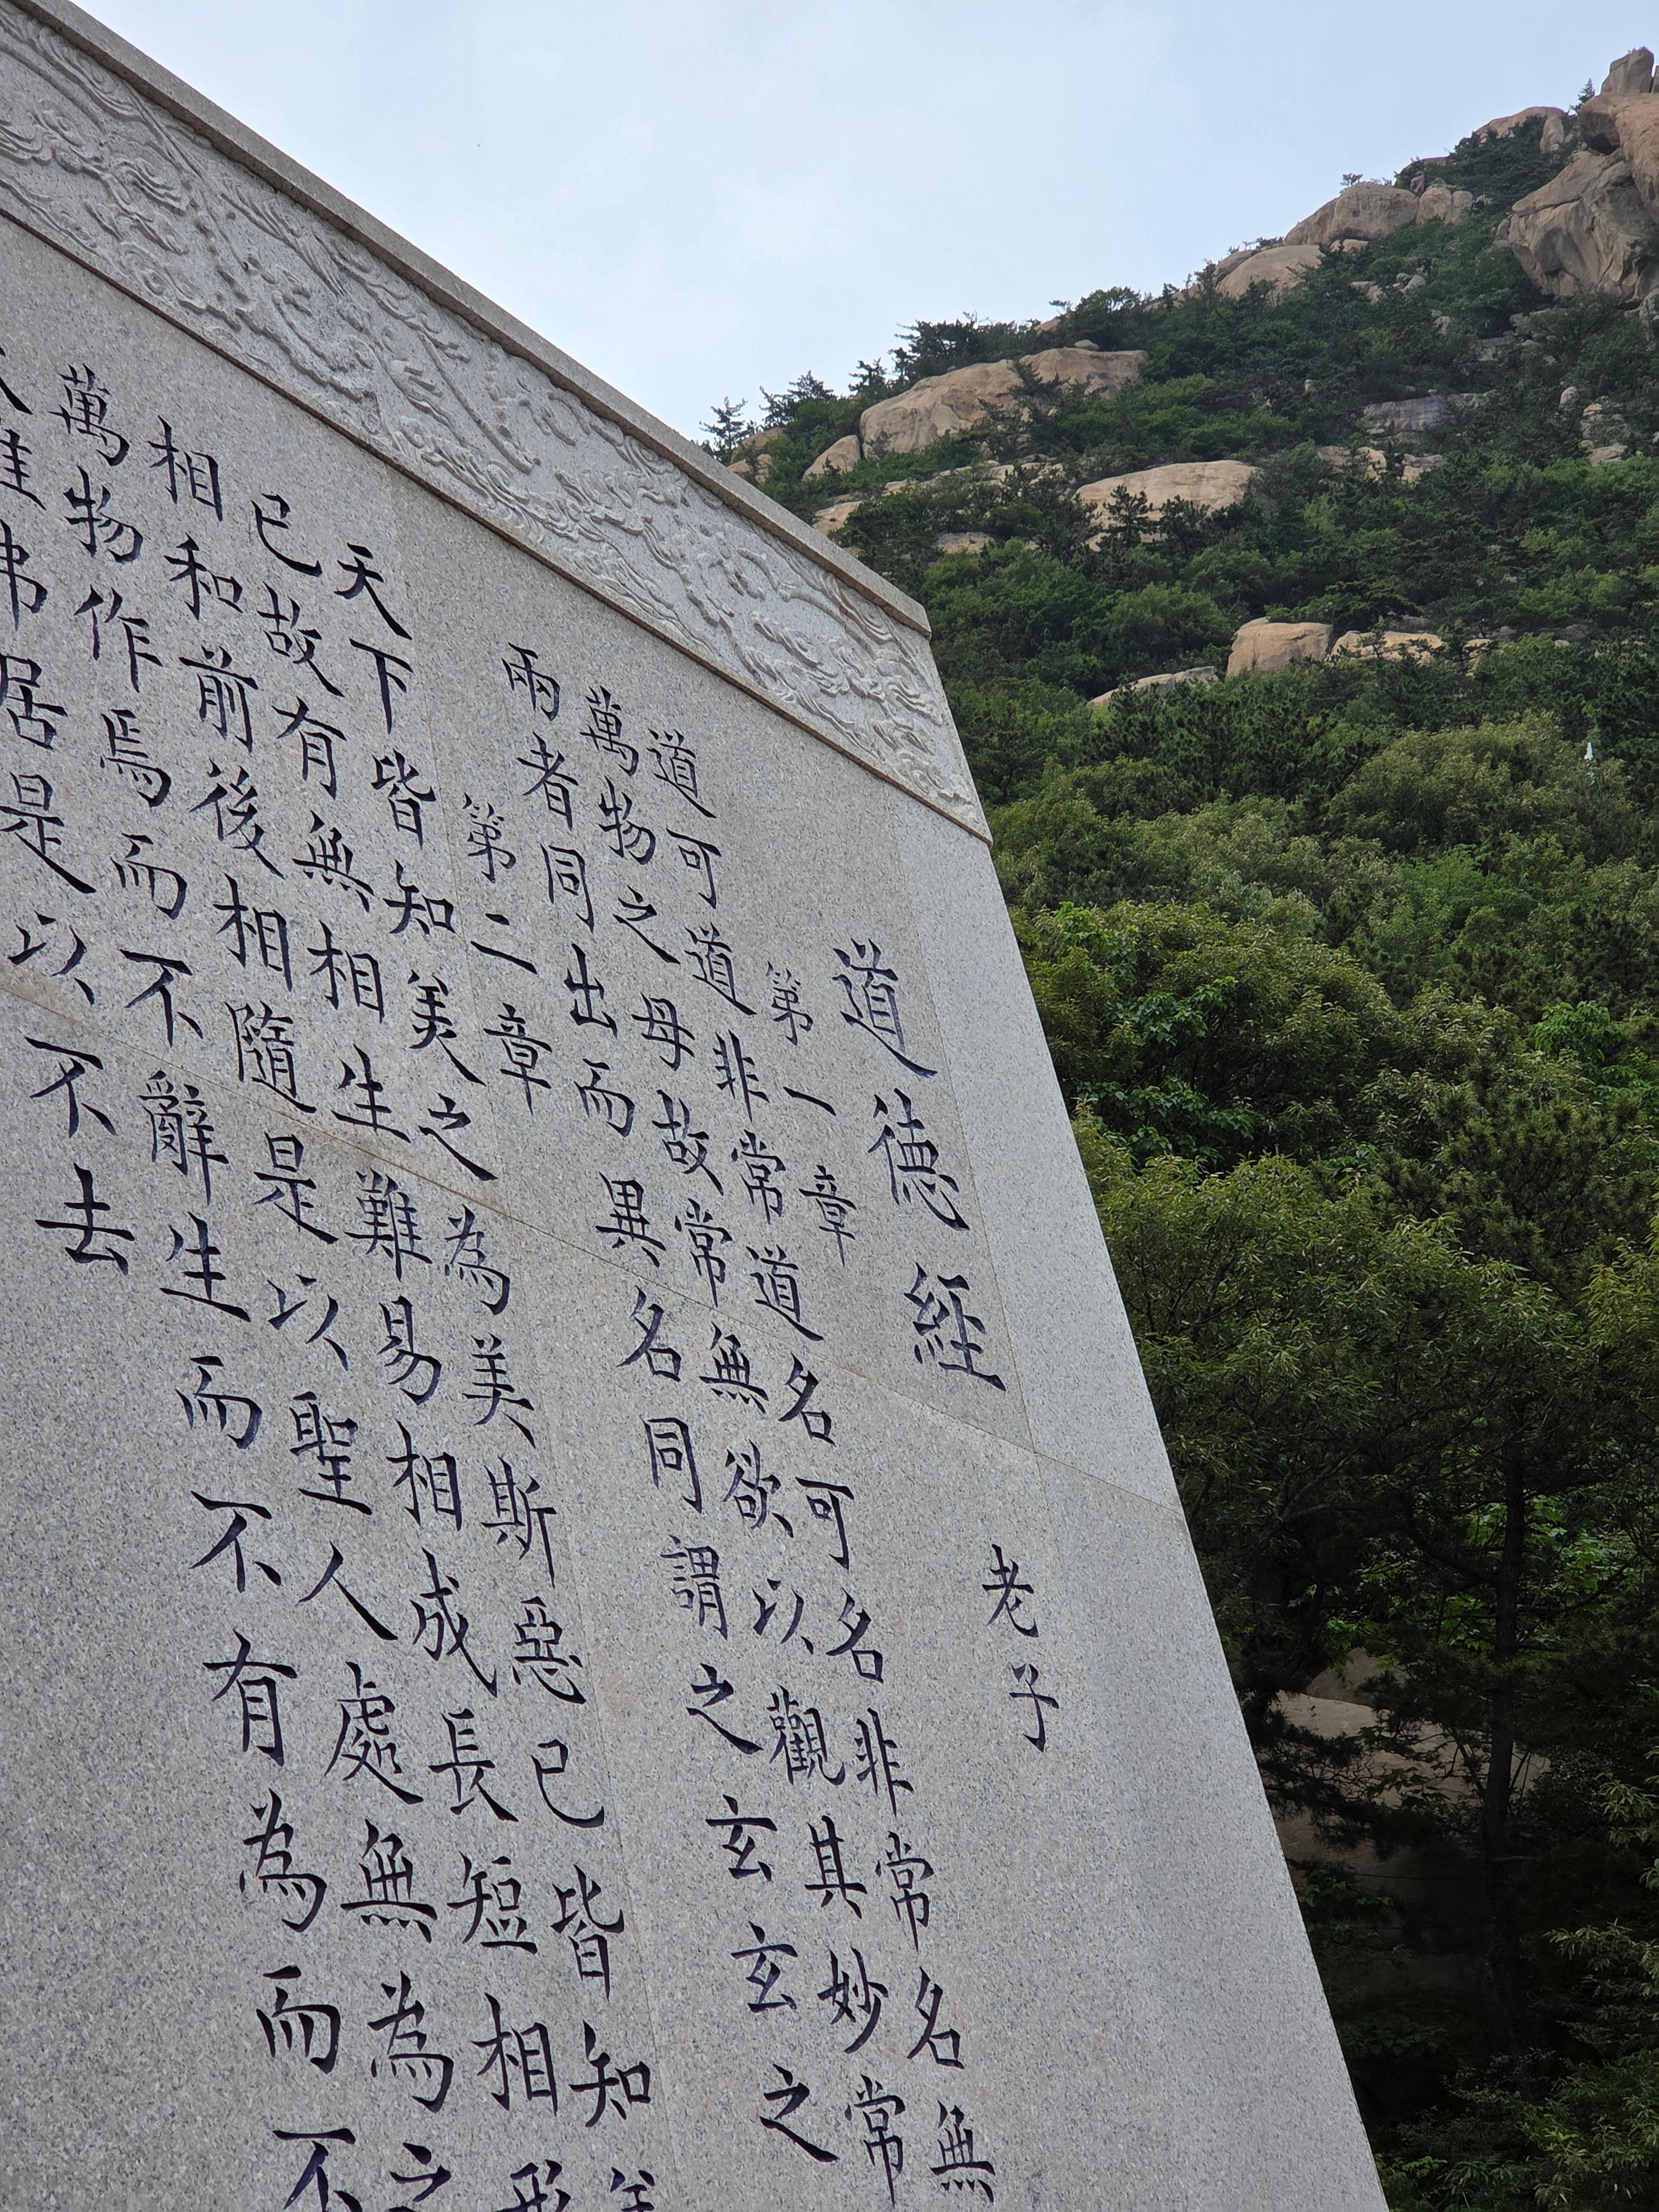 道德經 老子
第一章
道可道非常道名可名非常名無
萬物之母故常無欲以觀其妙常
兩者同出而異名同謂之玄玄之
第二章
天下皆知美之為美斯惡已皆知
已故有無相生難易相成長短相形
相和前後相隨是以聖人處無為之
萬物作焉而不辭生而不有為而不
弗居是以不去